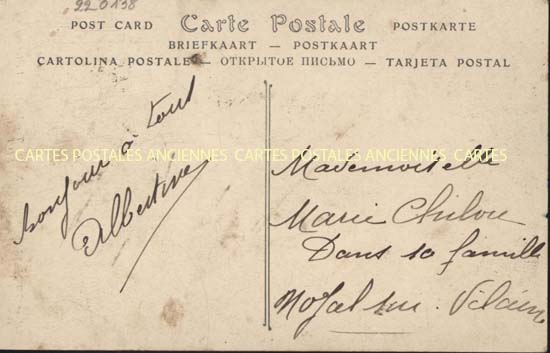 220138
POST CARD Carte Postale POSTKARTE
BRIEFKAART — POSTKAART
CARTOLINA POSTALE — ОТКРЫТОЕ ПИСЬМО — TARJETA POSTAL
bonjour à tous
Albertine
CARTES POSTALES ANCIENNES CARTES POSTALES ANCIENNES
Mademoiselle
Marie
Dans sa famille
Noyal sur Vilaine